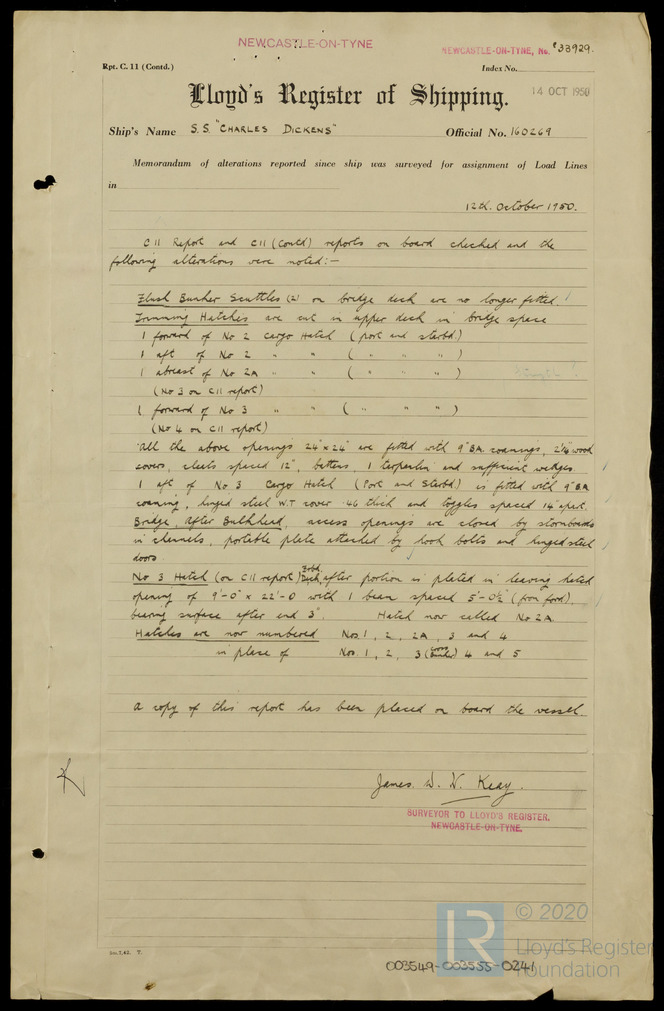 NEWCASTLE-ON-TYNE
NEWCASTLE-ON-TYNE, No. 33929.
Rpt. C. 11 (Contd.)
Index No.
Lloyd's Register of Shipping.
14 OCT 1950
Ship's Name S.S. "CHARLES DICKENS"
Official No. 160269
Memorandum of alterations reported since ship was surveyed for assignment of Load Lines
in
12th. October 1950.
C11 Report and C11 (Contd) reports on board checked and the
following alterations were noted:-
Flush Bunker Scuttles (2) on bridge deck are no longer fitted.
Trimming Hatches are cut in upper deck in bridge space
1 forward of No 2 cargo Hatch (port and starbd.)
1 aft of No 2 " " ( " " " )
1 abreast of No 2A " " ( " " " )
(No 3 on C11 report)
1 forward of No 3 " " ( " " " )
(No 4 on C11 report)
All the above openings 24" x 24" are fitted with 9" BA. coamings, 2½" wood
covers, cleats spaced 12", battens, 1 tarpaulin and sufficient wedges.
1 aft of No 3 Cargo Hatch (Port and Starbd.) is fitted with 9" BA
coaming, hinged steel W.T cover .46 thick and toggles spaced 14" apart.
Bridge, After Bulkhead, access openings are closed by stormboards
in channels, portable plate attached by hook bolts and hinged steel
doors.
No 3 Hatch (on C11 report) Deck after portion is plated in leaving hatch
opening of 9'-0" x 22'-0 with 1 beam spaced 5'-0½" (from ford).
bearing surface after end 3". Hatch now called No 2A
Hatches are now numbered Nos. 1, 2, 2A, 3 and 4
in place of Nos. 1, 2, 3 (Cross Bunker) 4 and 5
A copy of this report has been placed on board the vessel.
James. W. W. Keay.
SURVEYOR TO LLOYD'S REGISTER.
NEWCASTLE-ON-TYNE.
LR
© 2020
Lloyd's Register
Foundation
003549-003555-0241